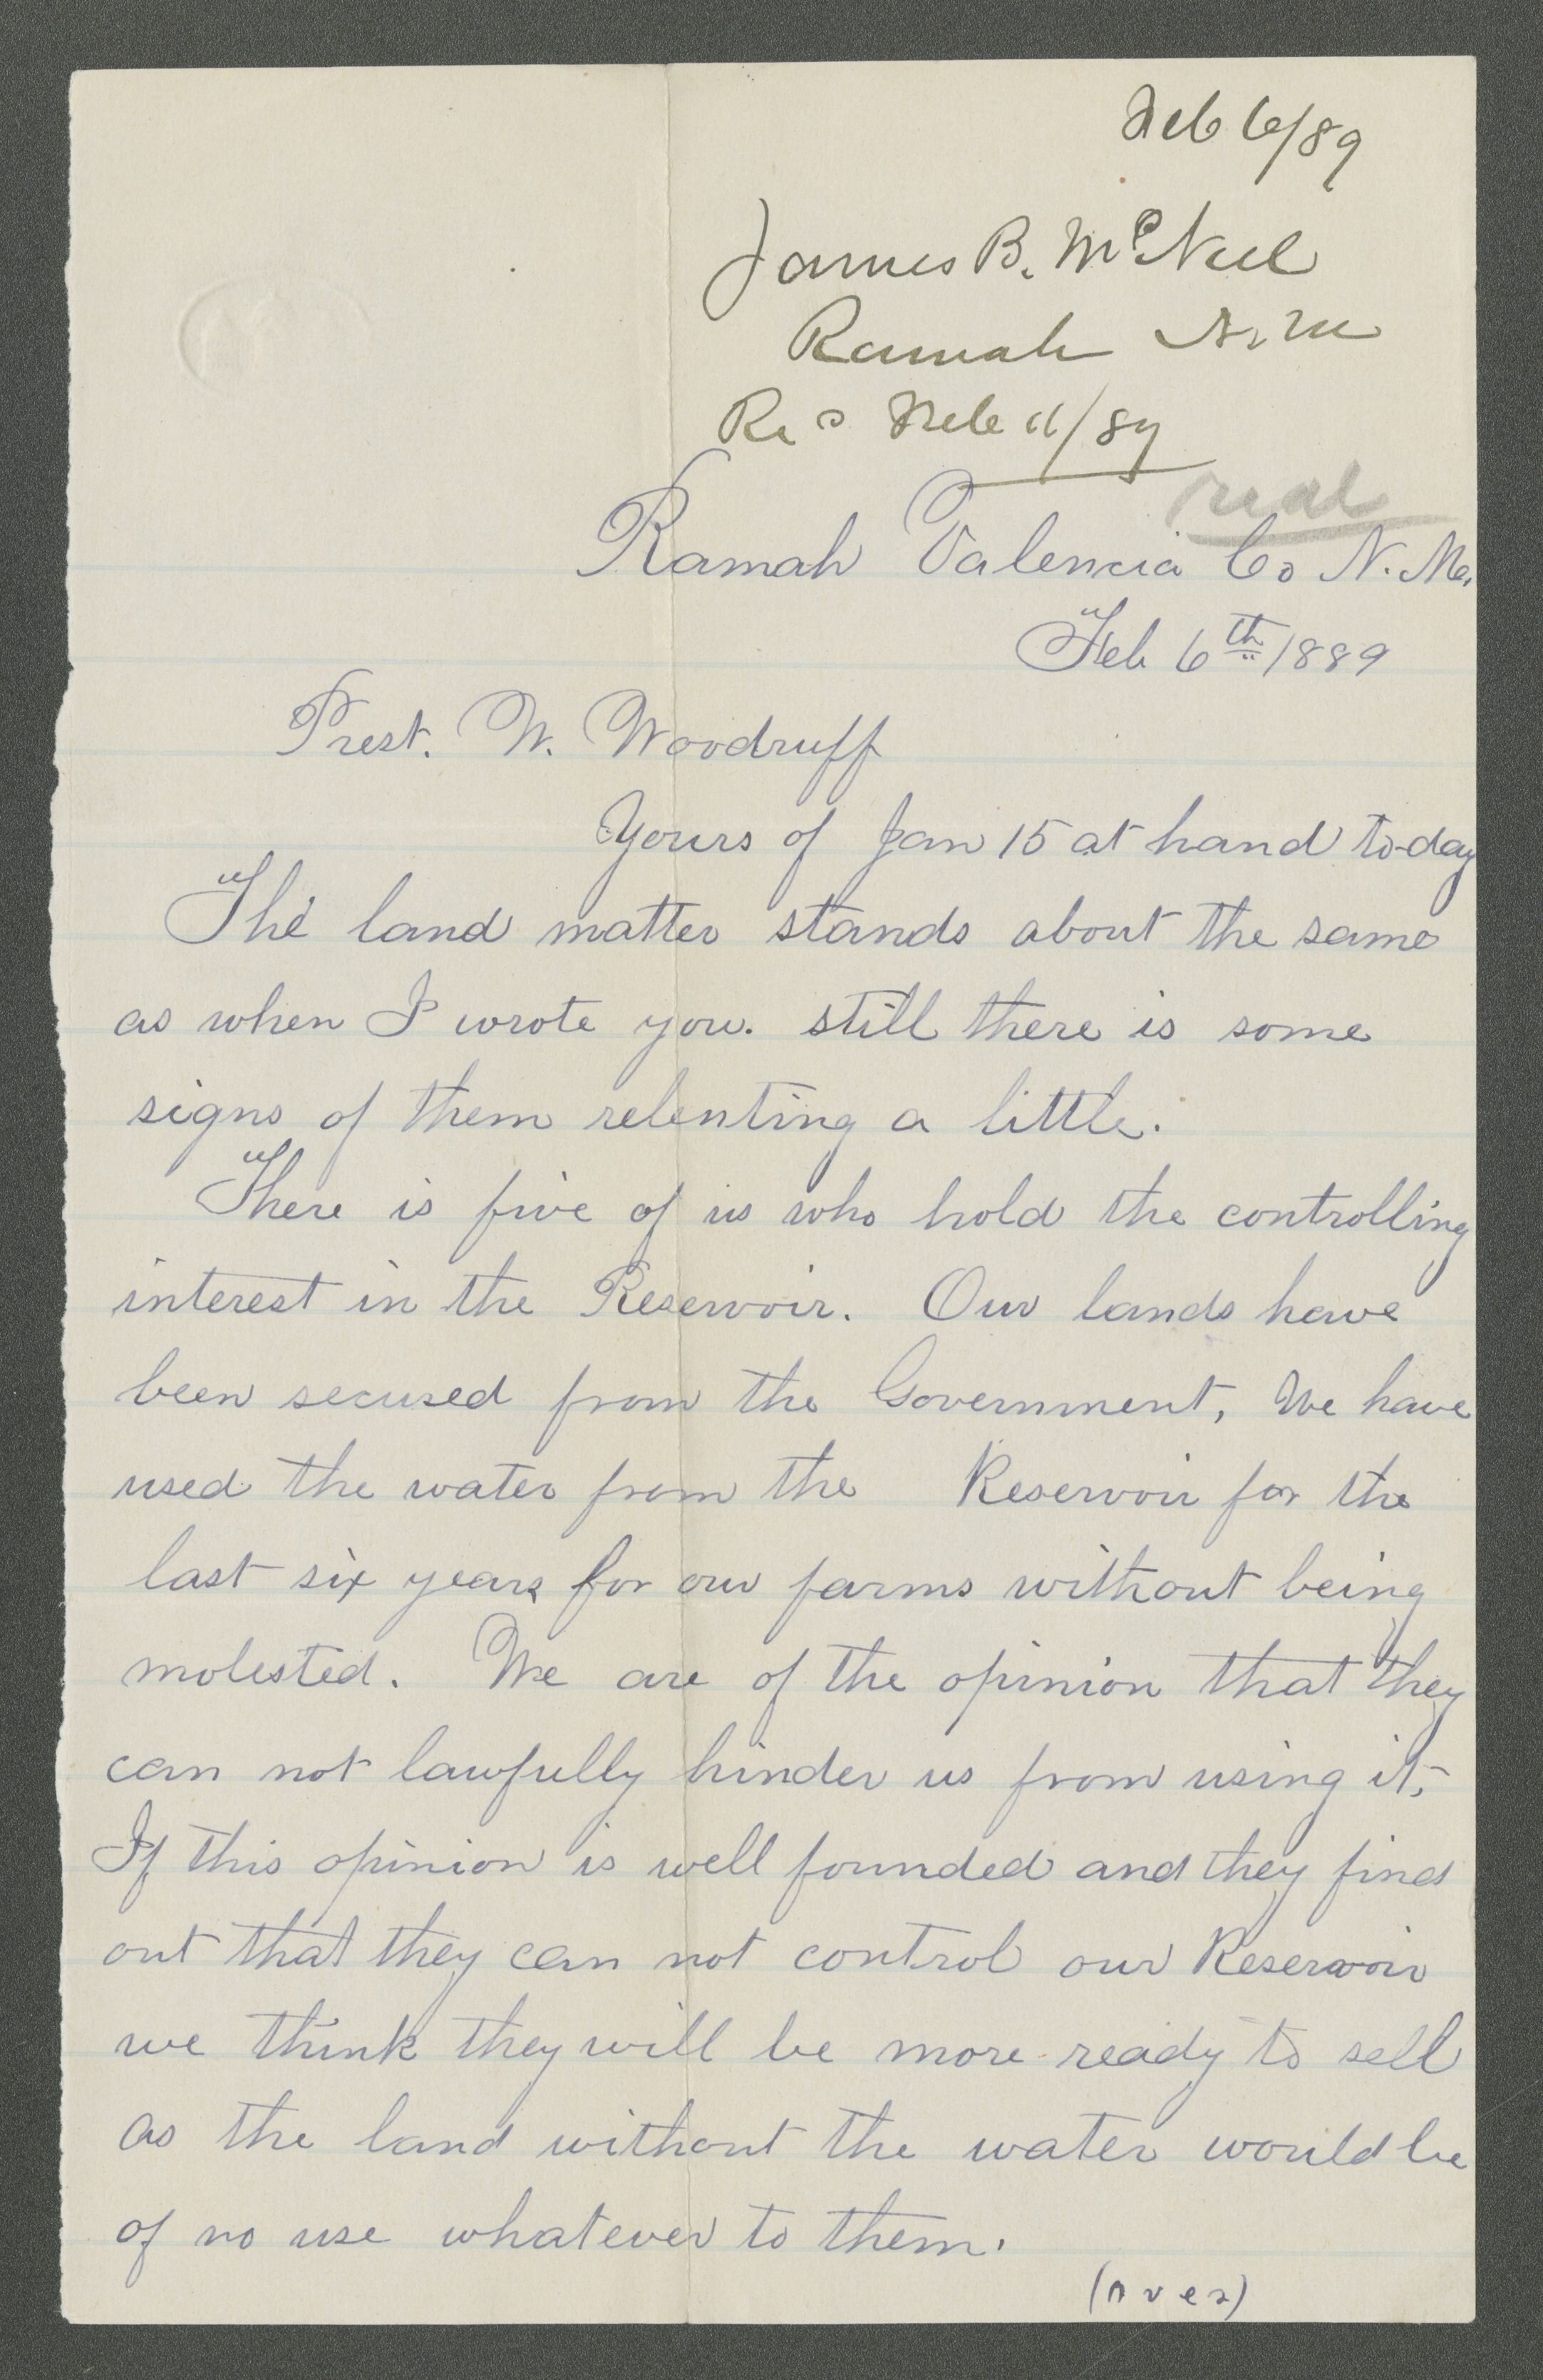 Feb 6/89
James B. McNeil
Ramah N. M
Rec Feb 11/89
read
Ramah Valencia Co N. M.
Feb 6th 1889
Prest. W. Woodruff
Yours of Jan 15 at hand to-day
The land matter stands about the same
as when I wrote you. still there is some
signs of them relenting a little.
There is five of us who hold the controlling
interest in the Reservoir. Our lands have
been secured from the Government, We have
used the water from the Reservoir for the
last six years for our farms without being
molested. We are of the opinion that they
can not lawfully hinder us from using it,
If this opinion is well founded and they find
out that they can not control our Reservoir
we think they will be more ready to sell
as the land without the water would be
of no use whatever to them.
(over)